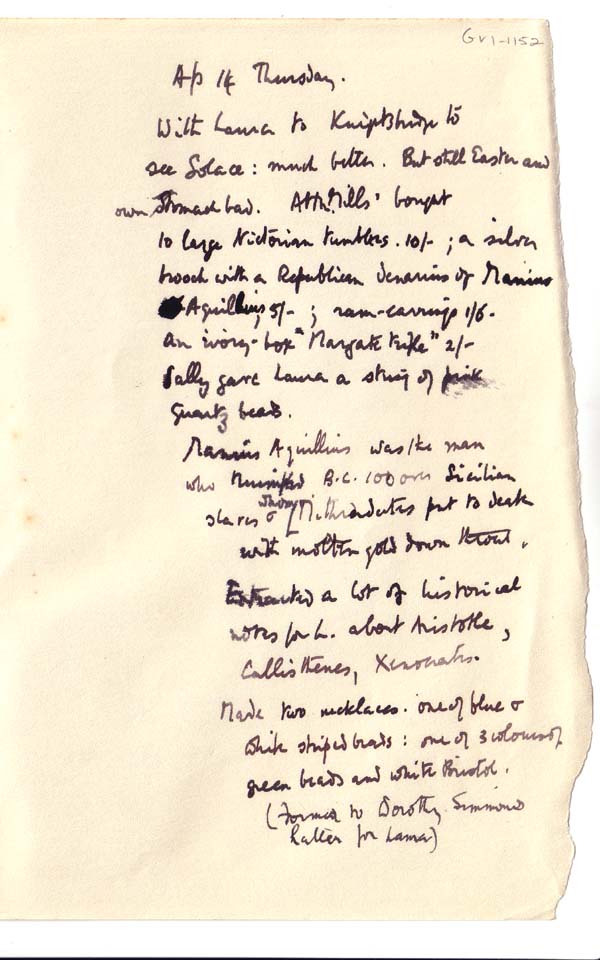 GV1-1152
Ap 14 Thursday.
With Laura to Knightsbridge to
see Solace: much better. But still Easter and
own stomach bad. At Mills' bought
10 large Victorian tumblers. 10/- ; a silver
brooch with a Republican denarius of Manius
Aquillius, 5/- ; ram-earrings 1/6-
an ivory-box "Margate trifle" 2/-
Sally gave Laura a string of pink
quartz beads.
Manius Aquillius was the man
who triumphed B.C. 100 over Sicilian
slaves & whom Mithridates put to death
with molten gold down throat.
Extracted a lot of historical
notes for L. about Aristotle,
Callisthenes, Xenocrates.
Made two necklaces. one of blue &
white striped beads: one of 3 colours of
green beads and white Bristol.
(Former to Dorothy Simmons
latter for Laura)